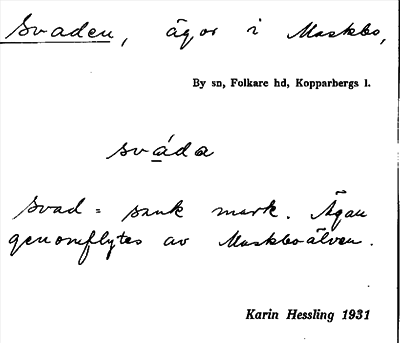 Svaden, ägor i Maskbo,
By sn, Folkare hd, Kopparbergs l.
sváda
Svad = sank mark. Ägan
genomflytes av Maskboälven.
Karin Hessling 1931